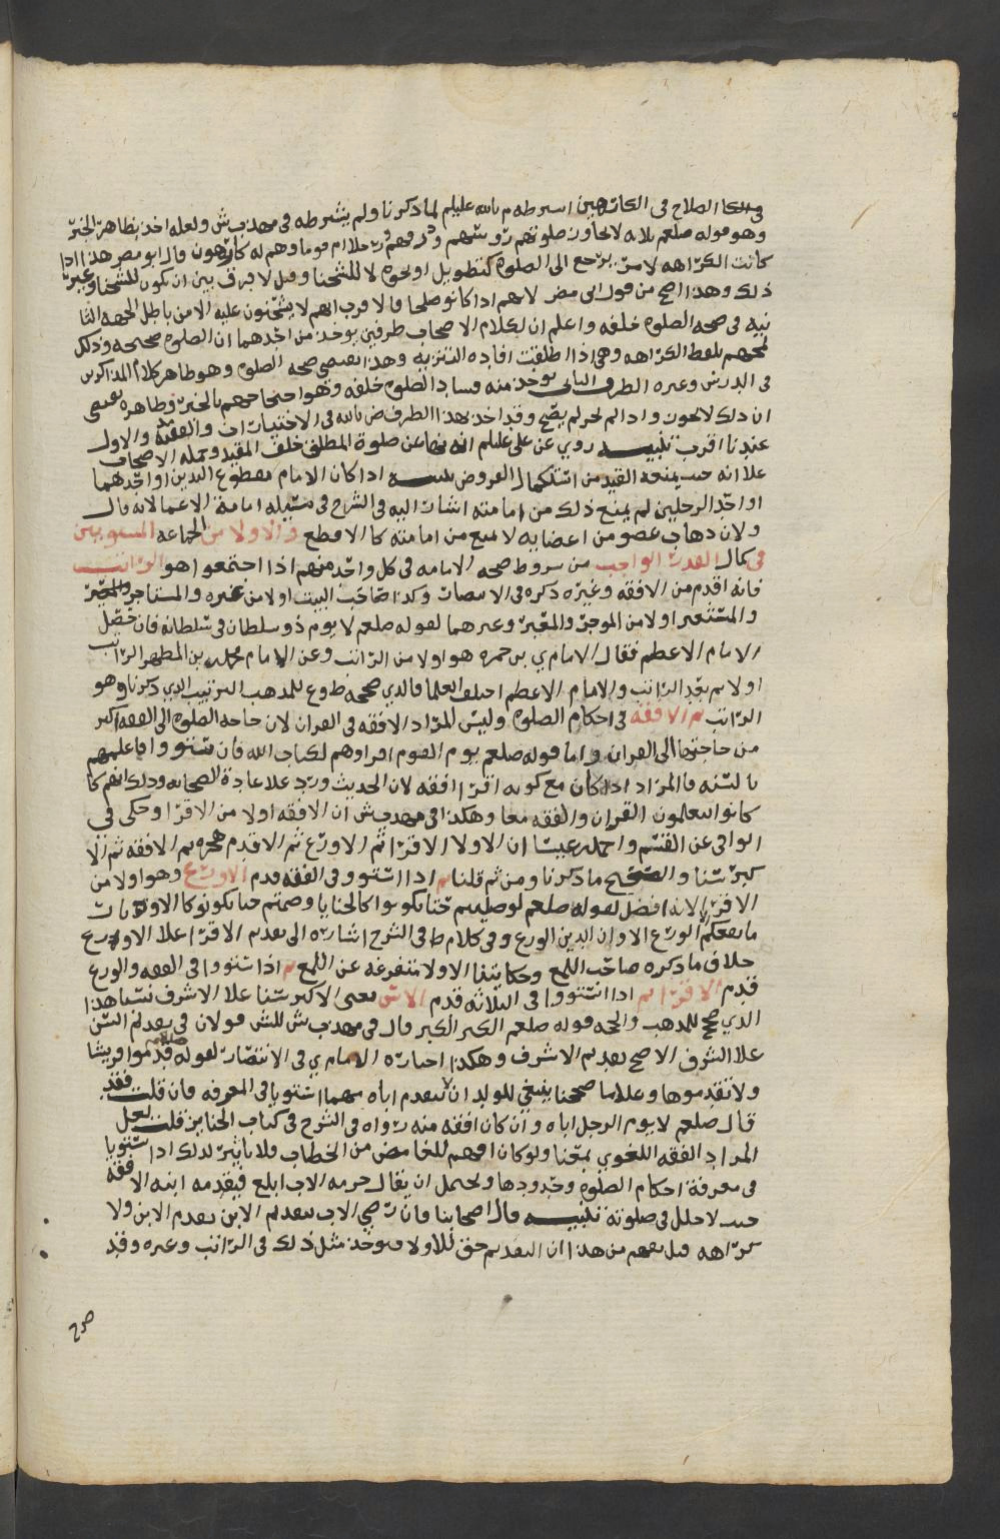 الصلاح في الكارهين اشترطه م بالله عليلم لما ذكرنا ولم يشترطه في مهذب ش ولعله اخذ بظاهر الخبر
وهو قوله صلعم ثلاثه لا تجاوز صلوتهم رؤسهم وذكر فيهم رجلا ام قوما وهم له كارهون قال ابو مضر هذا اذا
كانت الكراهه لامر يرجع الى الصلوه كتطويل او نحوه لا للشحنا وقيل لا فرق بين ان تكون للشحنا وغيرها
ذلك وهذا اصح من قول ابي مضر لانهم اذا كانوا صلحا فالاقرب انهم لا يشحنون عليه الا من باطل الجهه الثا
نيه في صحه الصلوه خلفه واعلم ان لكلام الاصحاب طرفين يوخذ من احدهما ان الصلوه صحيحه وذلك
لفظ الكراهه وهي اذا اطلقت افاده التنزيه وهذا يقتضي صحه الصلوه وهو ظاهر كلام المذاكرين
في الدرس وغيره الطرف الثاني يوخذ منه فساد الصلوه خلفه وهو احتجاجهم بالخبر وظاهره يقتضي
ان ذلك لا يجوز واذا لم يجز لم يصح وقد اخذ بهذا الطرف ض بالله في الاختيارات والفقيه والاول
عندنا اقرب تنبيه روي عن علي عليلم انه نها عن صلوة المطلق خلف المقيد وحمله الاصحاب
علا انه حيث يمنعه القيد من استكمال الفروض تنبيه اذا كان الامام مقطوع اليدين او احدهما
او احد الرجلين لم يمنع ذلك من امامته اشار اليه في الشرح في مسئله امامة الاعما لانه قال
ولان ذهاب عضو من اعضايه لا يمنع من امامته كالاقطع والاولا من الجماعه المستويين
في كمال القدر الواجب من شروط صحه الامامه في كل واحد منهم اذا اجتمعوا هو الراتب
فانه اقدم من الافقه وغيره ذكره في الانتصار وكذا صاحب البيت اولا من غيره والمستاجر
والمستعير اولا من الموجر والمعير وغيرهما لقوله صلعم لا يوم ذو سلطان في سلطانه فان حصل
الامام الاعظم فقال الامام ي بن حمزه هو اولا من الراتب وعن الامام محمد بن المطهر الراتب
اولا ثم بعد الراتب والامام الاعظم اختلف العلما فالذي صححه ط وع للمذهب الترتيب الذي ذكرنا وهو
الراتب ثم الافقه في احكام الصلوه وليس المراد الافقه في القران لان حاجه الصلوه الى الفقه اكثر
من حاجتها الى القران واما قوله صلعم يوم القوم اقراوهم لكتاب الله فان استووا فاعلمهم
بالسنه فالمراد اذا كان مع كونه اقرا افقه لان الحديث ورد علا عادة الصحابه وذلك انهم كا
كانوا يتعلمون القران والفقه معا وهكذا في مهذب ش ان الافقه اولا من الاقرا وحكى في
الوافي عن القسم واحمد بن عيسا ان الاولا الاقرا ثم الاورع ثم الاقدم هجره ثم الافقه ثم الا
كبر سنا والصحيح ما ذكرنا ومن ثم قلنا ثم اذا استووا في الفقه قدم الاورع وهو اولا من
الاقرا لانه افضل لقوله صلعم لو صليتم حتا تكونوا كالحنايا وصمتم حتا تكونوا كالاوتار
ما نفعكم الا الورع الا وان الدين الورع وفي كلام ط في الشرح اشاره الى تقديم الاقرا علا الاورع
خلاف ما ذكره صاحب اللمع وحكايتنا الاولا متفرغه عن اللمع ثم اذا استووا في الفقه والورع
قدم الاقرا ثم اذا استووا في الثلاثه قدم الاسن يعني الاكبر سنا علا الاشرف نسبا هذا
الذي صح للمذهب والحجه قوله صلعم الكبر الكبر قال في مهذب ش للش قولان في تقديم السن
علا الشرف الاصح تقديم الاشرف وهكذا اختاره الامام ي في الانتصار لقوله صلعم قدموا قريشا
ولا تقدموها وعلا ما صححنا ينبغي للولد ان لا يتقدم اباه مهما استويا في المعرفه فان قلت فقد
قال صلعم لا يوم الرجل اباه وان كان افقه منه رواه في الشرح في كتاب الجنايز قلت لعل
المراد الفقه اللغوي بمعنا ولو كان افهم للغامض من الخطاب فلا تاثير لذلك اذا استويا
في معرفة احكام الصلوه وحدودها ويحتمل ان يقال حرمه الاب ابلغ فيقدمه ابنه الافقه
حيث لا خلل في صلوته تنبيه قال اصحابنا فان رضي الاب بتقديم الابن تقدم الابن ولا
كراهه قيل يفهم من هذا ان التقديم حق للاولا فيوخذ مثل ذلك في الراتب وغيره وقد